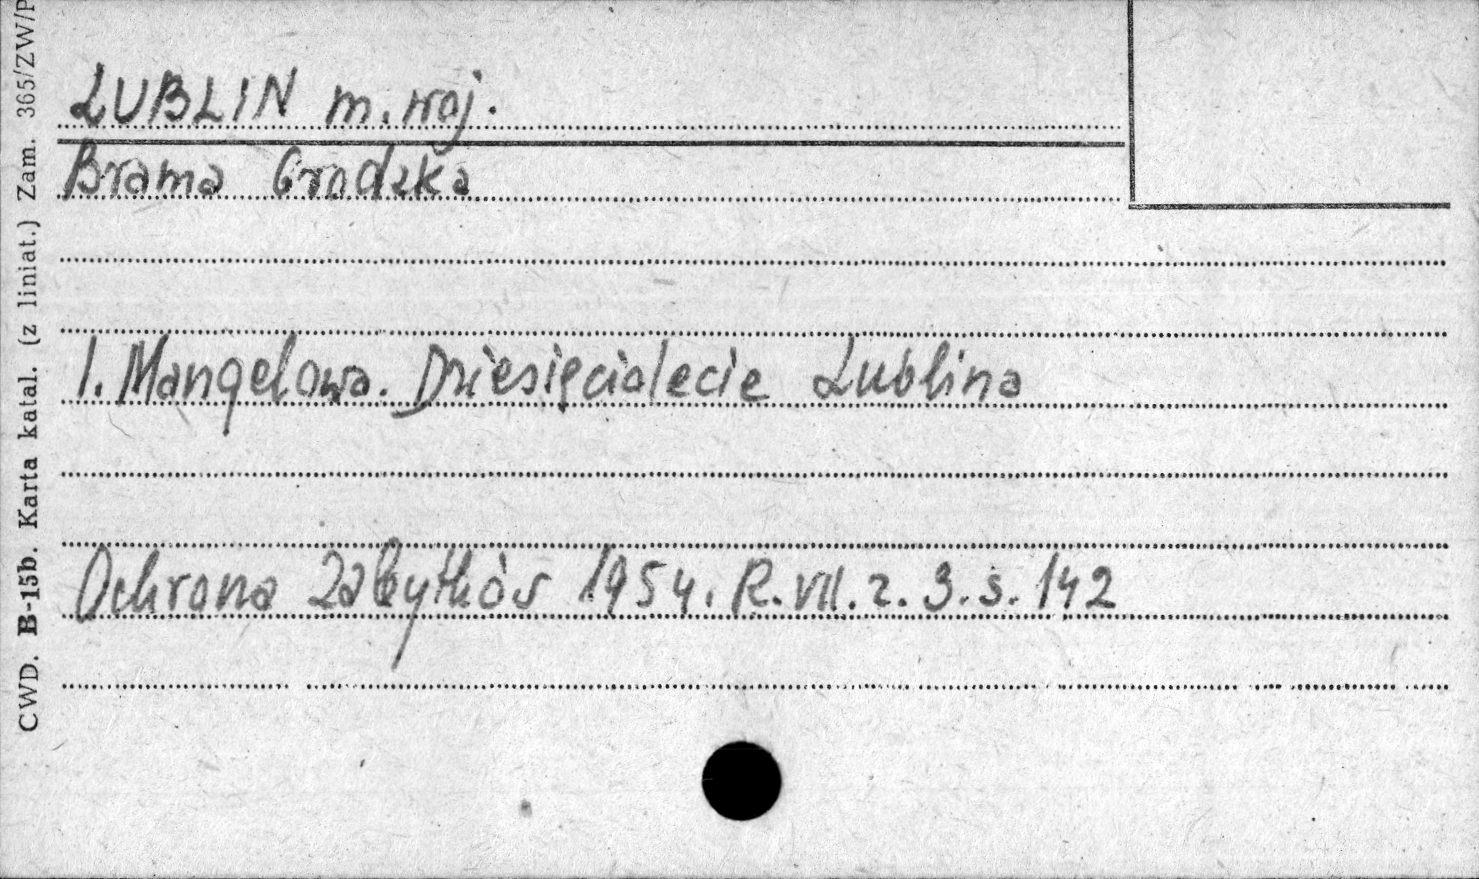 LUBLIN m. woj.
Brama Grodzka
I. Mangelowa. Dziesięciolecie Lublina
Ochrona Zabytków 1954. R. VII. z. 3. s. 142
CWD. B-15b. Karta katal. (z liniat.) Zam. 365/ZW/P